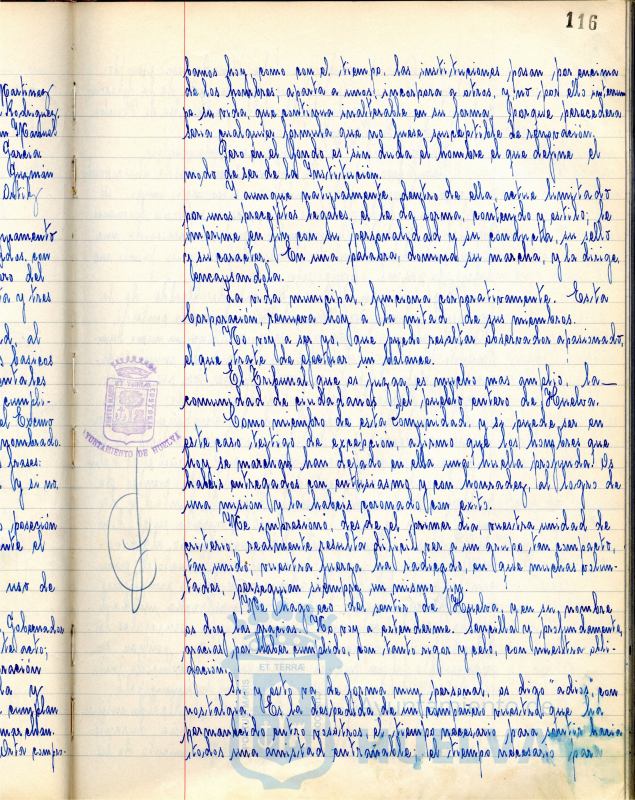 116
Martinez
Rodriguez
Manuel
Garcia
Guzmán
Ortiz
bamos hoy, como con el tiempo, las instituciones pasan por encima
de los hombres; aparta a unos, incorpora a otros, y no por ello interrum
pe su vida, que continua inalterable en su forma. Porque perecedera
seria cualquier fórmula que no fuese susceptible de renovación.
Pero en el fondo, es sin duda el hombre el que define el
modo de ser de la Institución.
Y aunque naturalmente, dentro de ella, actue limitado
por unos preceptos legales, el le da forma, contenido y estilo; le
imprime en fin con su personalidad y su conducta, su sello
y su caracter. En una palabra, domina su marcha, y la dirige,
encausandola.
La vida municipal, funciona corporativamente. Esta
Corporación, renueva hoy a la mitad de sus miembros.
No voy a ser yo, que puedo resultar observador apasionado,
el que trate de efectuar un balance.
El Tribunal que os juzga es mucho mas amplio; la
comunidad de ciudadanos, el pueblo entero de Huelva.
Como miembro de esta comunidad, y si puede ser en
este caso testigo de excepción, afirmo que los hombres que
hoy se marchan han dejado en ella una huella profunda. Os
habeis entregados con entusiasmo y con honradez, al logro de
una misión y la habeis coronado con exito.
Me impresiono, desde el primer dia, vuestra unidad de
criterio; realmente resulta dificil ver a un grupo tan compacto,
tan unido; vuestra fuerza ha radicado, en que muchas volun-
tades, perseguian siempre un mismo fin.
Me hago eco del sentir de Huelva, y en su nombre
os doy las gracias. No voy a extenderme. Sencilla y profundamente,
gracias, por haber cumplido, con tanto rigor y celo, con nuestra obli-
gación.
Y esto va de forma muy personal, os digo "adios" con
nostalgia. Es la despedida de un compañero vuestro que ha
permanecido entre vosotros el tiempo necesario para sentir hacia
todos una amistad entrañable; el tiempo necesario para
ET TERRÆ
AYUNTAMIENTO DE HUELVA
Ayuntamiento de
HUELVA